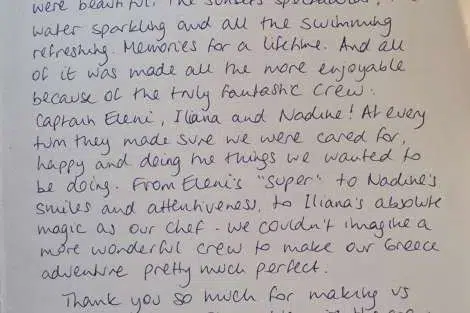 were beautiful. The sunsets spectacular, the
water sparkling and all the swimming
refreshing. Memories for a lifetime. And all
of it was made all the more enjoyable
because of the truly fantastic crew.
Captain Eleni, Iliana and Nadine! At every
turn they made sure we were cared for,
happy and doing the things we wanted to
be doing. From Eleni's "super" to Nadine's
smiles and attentiveness, to Iliana's absolute
magic as our chef - we couldn't imagine a
more wonderful crew to make our Greece
adventure pretty much perfect.
Thank you so much for making us